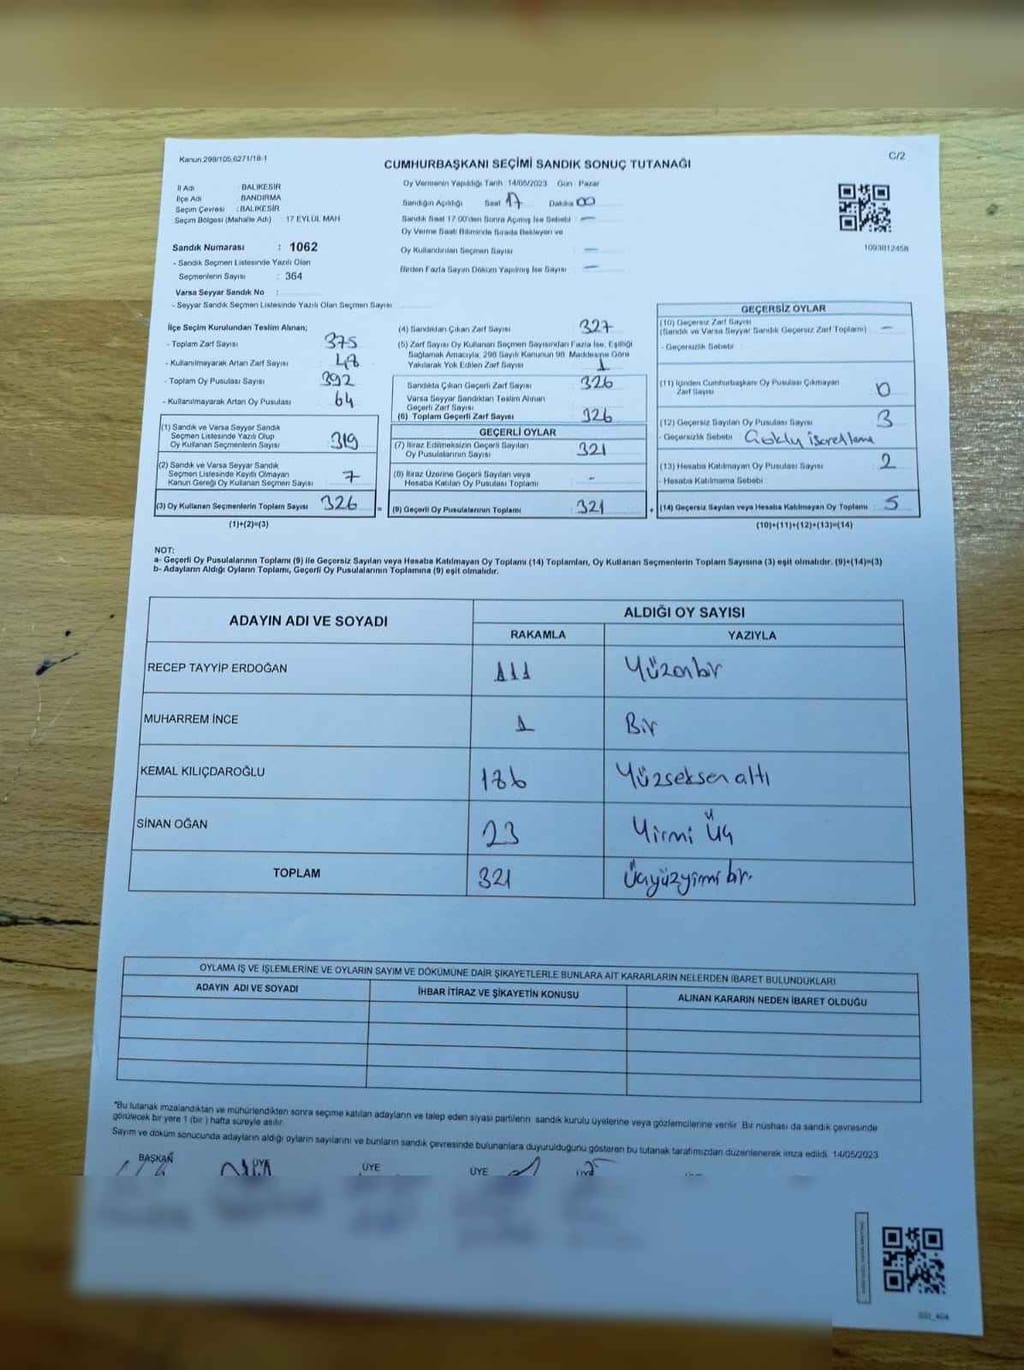 Kanun 298/105,6271/18-1
CUMHURBAŞKANI SEÇİMİ SANDIK SONUÇ TUTANAĞI
C/2
İl Adı BALIKESİR
İlçe Adı BANDIRMA
Seçim Çevresi : BALIKESİR
Seçim Bölgesi (Mahalle Adı) 17 EYLÜL MAH
Sandık Numarası : 1062
- Sandık Seçmen Listesinde Yazılı Olan
Seçmenlerin Sayısı : 364
Varsa Seyyar Sandık No :
- Seyyar Sandık Seçmen Listesinde Yazılı Olan Seçmen Sayısı
Oy Vermenin Yapıldığı Tarih 14/05/2023 Gün Pazar
Sandığın Açıldığı Saat 17 Dakika 00
Sandık Saat 17:00'den Sonra Açılmış İse Sebebi : -
Oy Verme Saati Bitiminde Sırada Bekleyen ve
Oy Kullandırılan Seçmen Sayısı -
Birden Fazla Sayım Döküm Yapılmış İse Sayısı -
1093812458
İlçe Seçim Kurulundan Teslim Alınan;
- Toplam Zarf Sayısı 375
- Kullanılmayarak Artan Zarf Sayısı 48
- Toplam Oy Pusulası Sayısı 392
- Kullanılmayarak Artan Oy Pusulası 64
(1) Sandık ve Varsa Seyyar Sandık
Seçmen Listesinde Yazılı Olup
Oy Kullanan Seçmenlerin Sayısı 319
(2) Sandık ve Varsa Seyyar Sandık
Seçmen Listesinde Kayıtlı Olmayan
Kanun Gereği Oy Kullanan Seçmen Sayısı 7
(3) Oy Kullanan Seçmenlerin Toplam Sayısı 326
(1)+(2)=(3)
(4) Sandıktan Çıkan Zarf Sayısı 327
(5) Zarf Sayısı Oy Kullanan Seçmen Sayısından Fazla İse, Eşitliği
Sağlamak Amacıyla, 298 Sayılı Kanunun 98. Maddesine Göre
Yakılarak Yok Edilen Zarf Sayısı 1
Sandıkta Çıkan Geçerli Zarf Sayısı 326
Varsa Seyyar Sandıktan Teslim Alınan
Geçerli Zarf Sayısı
(6) Toplam Geçerli Zarf Sayısı 326
GEÇERLİ OYLAR
(7) İtiraz Edilmeksizin Geçerli Sayılan
Oy Pusulalarının Sayısı 321
(8) İtiraz Üzerine Geçerli Sayılan veya
Hesaba Katılan Oy Pusulası Toplamı -
= (9) Geçerli Oy Pusulalarının Toplamı 321
GEÇERSİZ OYLAR
(10) Geçersiz Zarf Sayısı
(Sandık ve Varsa Seyyar Sandık Geçersiz Zarf Toplamı) -
- Geçersizlik Sebebi
(11) İçinden Cumhurbaşkanı Oy Pusulası Çıkmayan
Zarf Sayısı 0
(12) Geçersiz Sayılan Oy Pusulası Sayısı 3
- Geçersizlik Sebebi Çoklu işaretleme
(13) Hesaba Katılmayan Oy Pusulası Sayısı 2
- Hesaba Katılmama Sebebi
+ (14) Geçersiz Sayılan veya Hesaba Katılmayan Oy Toplamı 5
(10)+(11)+(12)+(13)=(14)
NOT:
a- Geçerli Oy Pusulalarının Toplamı (9) ile Geçersiz Sayılan veya Hesaba Katılmayan Oy Toplamı (14) Toplamları, Oy Kullanan Seçmenlerin Toplam Sayısına (3) eşit olmalıdır. (9)+(14)=(3)
b- Adayların Aldığı Oyların Toplamı, Geçerli Oy Pusulalarının Toplamına (9) eşit olmalıdır.
ADAYIN ADI VE SOYADI
ALDIĞI OY SAYISI
RAKAMLA YAZIYLA
RECEP TAYYİP ERDOĞAN 111 Yüzonbir
MUHARREM İNCE 1 Bir
KEMAL KILIÇDAROĞLU 186 Yüzseksenaltı
SİNAN OĞAN 23 Yirmi Üç
TOPLAM 321 Üçyüzyirmi bir.
OYLAMA İŞ VE İŞLEMLERİNE VE OYLARIN SAYIM VE DÖKÜMÜNE DAİR ŞİKAYETLERLE BUNLARA AİT KARARLARIN NELERDEN İBARET BULUNDUKLARI
ADAYIN ADI VE SOYADI İHBAR İTİRAZ VE ŞİKAYETİN KONUSU ALINAN KARARIN NEDEN İBARET OLDUĞU
*Bu tutanak imzalandıktan ve mühürlendikten sonra seçime katılan adayların ve talep eden siyasi partilerin sandık kurulu üyelerine veya gözlemcilerine verilir. Bir nüshası da sandık çevresinde
görülecek bir yere 1 (bir) hafta süreyle asılır.
Sayım ve döküm sonucunda adayların aldığı oyların sayılarını ve bunların sandık çevresinde bulunanlara duyurulduğunu gösteren bu tutanak tarafımızdan düzenlenerek imza edildi. 14/05/2023
BAŞKAN ÜYE ÜYE ÜYE